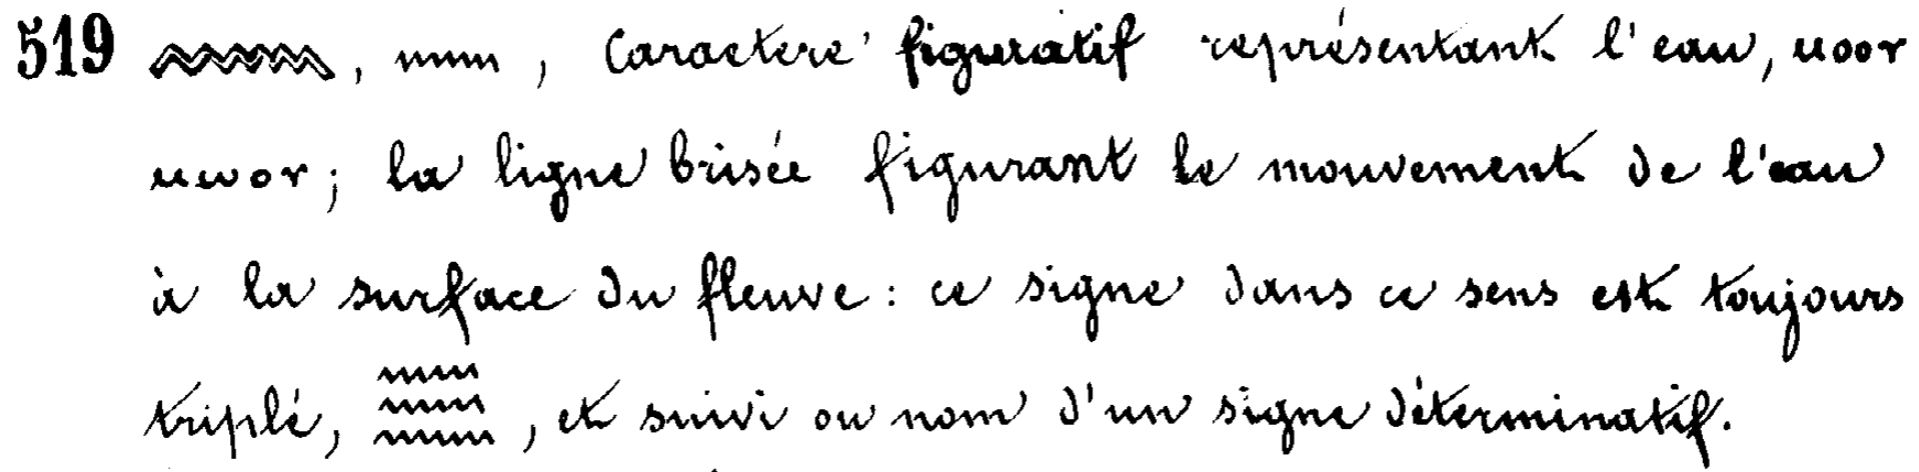 519 𓈖, 𓈖, Caractère figuratif représentant l'eau, ⲙⲟⲟⲩ
ⲙⲱⲟⲩ; la ligne brisée figurant le mouvement de l'eau
à la surface du fleuve: ce signe dans ce sens est toujours
triplé, 𓈗, et suivi ou non d'un signe déterminatif.